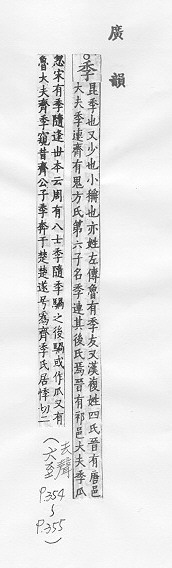 廣韻
季
昆季也又少也小稱也亦姓左傳魯有季友又漢複姓四氏晉有唐邑
大夫季連齊有鬼方氏第六子名季連其後氏焉晉有祁邑大夫季瓜
忽宋有季隨逢世本云周有八士季隨季騧之後騧或作瓜又有
魯大夫齊季窺昔齊公子季奔于楚楚遂号爲齊季氏居悸切二
(去聲
六至
P.354
~
P.355)